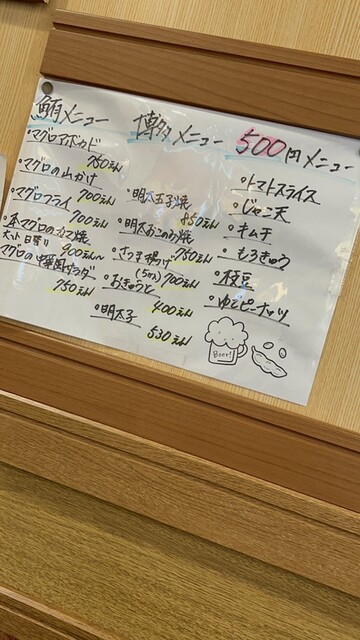 鮪メニュー
・マグロアボカド
750えん
・マグロの山かけ
700えん
・マグロフライ
700えん
・本マグロのカマ焼
大小日替り 900えん〜
マグロの中華風サラダ
750えん
博多メニュー
・明太玉子焼
850えん
・明太おこのみ焼
750えん
・さつま揚げ
(5コ)700えん
・おきゅうと
400えん
・明太子
530えん
500円メニュー
・トマトスライス
・じゃこ天
・キムチ
・もろきゅう
・枝豆
・ゆでピーナッツ
Beer!